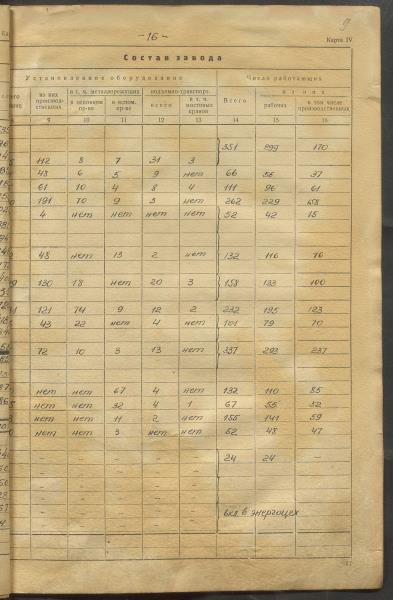 -16-
9
Карта IV
Состав завода
Установленное оборудование Число работающих
из них производственных в т. ч. металлорежущих подъемно-транспорт. Всего из них
в основном пр-ве в вспом. пр-ве всего в т. ч. мостовых кранов рабочих в том числе производственных
9 10 11 12 13 14 15 16
351 299 170
112 8 7 31 3
48 6 5 9 нет 66 56 37
61 10 4 8 4 111 96 61
191 70 9 3 нет 262 229 158
4 нет нет нет нет 52 42 15
48 нет 13 2 нет 132 116 76
130 18 нет 20 3 158 133 100
121 74 9 12 2 232 195 123
43 22 нет 4 нет 101 79 70
72 10 3 13 нет 337 293 237
нет нет 67 4 нет 132 110 85
нет нет 32 4 1 67 55 52
нет нет 11 2 нет 155 141 59
нет нет 3 нет нет 52 48 47
– – – – – 24 24 –
– – – – –
– – – – –
– – – – –
– – – – – вкл в энергоцех
– – – – –